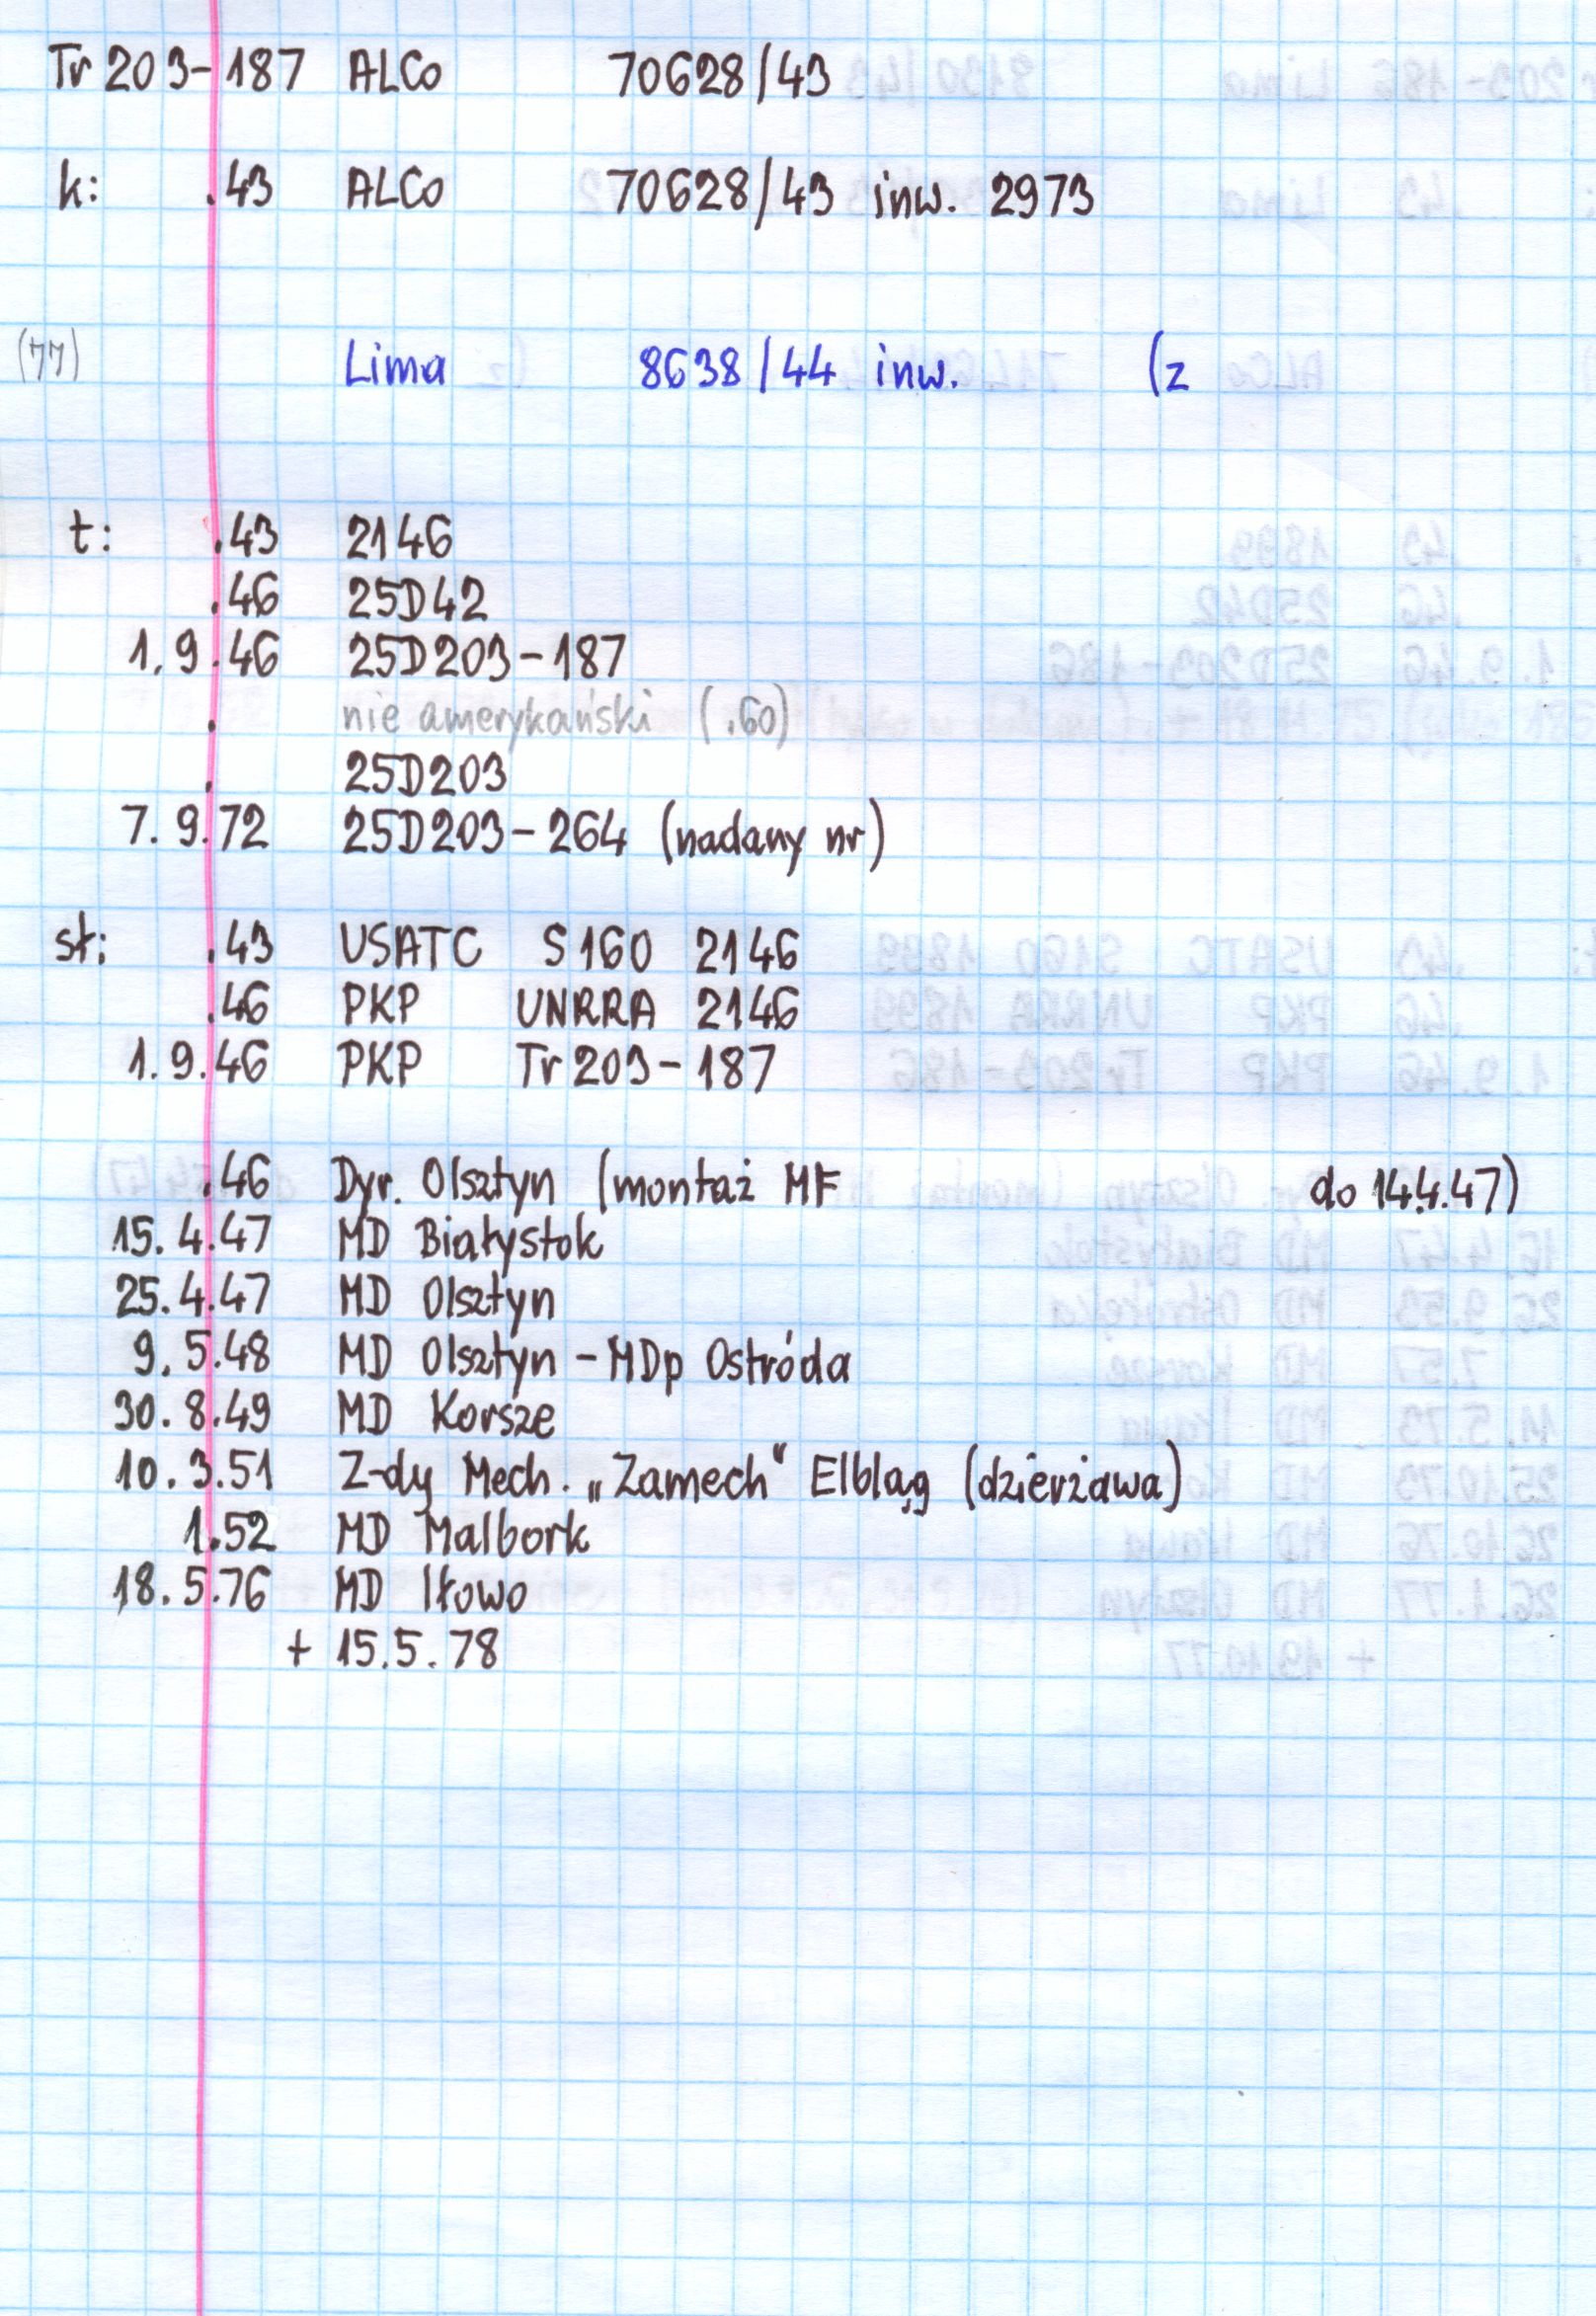 Tr 203-187 ALCo 70628/43
k: .43 ALCo 70628/43 inw. 2973
(77) Lima 8638/44 inw. (z
t: .43 2146
.46 25D42
1.9.46 25D203-187
. nie amerykański (.60)
. 25D203
7.9.72 25D203-264 (nadany nr)
sł: .43 USATC S160 2146
.46 PKP UNRRA 2146
1.9.46 PKP Tr 203-187
.46 Dyr. Olsztyn (montaż MF do 14.4.47)
15.4.47 MD Białystok
25.4.47 MD Olsztyn
9.5.48 MD Olsztyn - MDp Ostróda
30.8.49 MD Korsze
10.3.51 Z-dy Mech. „Zamech“ Elbląg (dzierżawa)
1.52 MD Malbork
18.5.76 MD Iłowo
+ 15.5.78